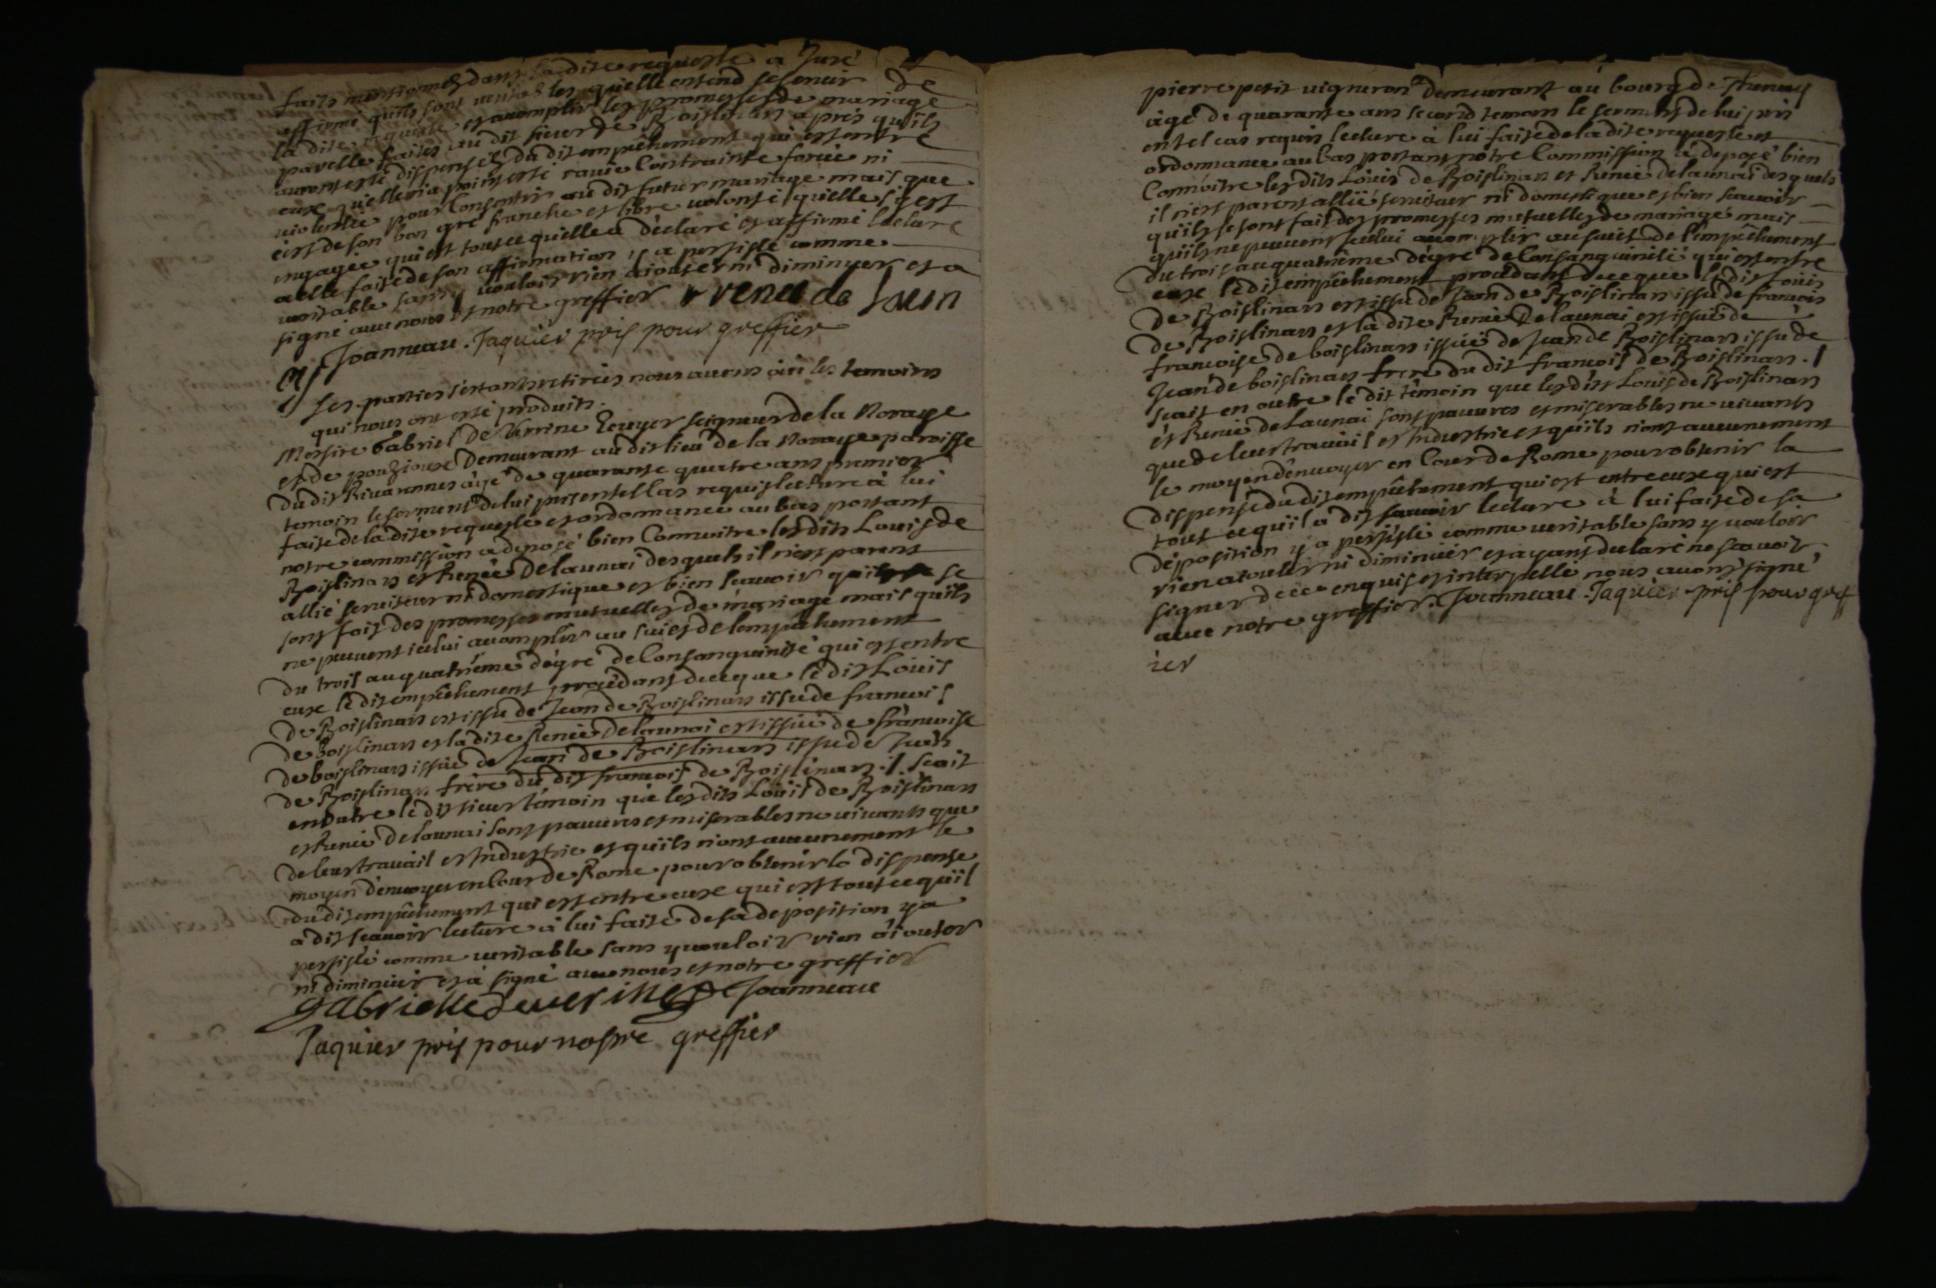 faits mentionnez dans la dite requeste a Juré et
affirmé quils sont veritables quelle entend se servir de
la dite requeste et accomplir les promesses de mariage
par elle faites au dit sieur de Boislinars apres qu'ils
auront esté dispensés du dit empêchement qui est entre
eux quelle n'a point esté ravie Contrainte forcée ni
violentée pour Consentir au dit futur mariage mais que
c'est de son bon gré franche et libre volonté quelle s'y est
engagée qui est tout ce quelle a déclaré et affirmé lecture
a elle faite de son affirmation y a persisté comme
veritable sans y vouloir rien aiouter ni diminuer et a
signé avec nous et notre greffier r renee de Launn
Joanneau. Jaquier pris pour greffier
Les parties s'estants retirées nous avons oüi les temoins
qui nous ont esté produits.
Messire Gabriel De Verrine Ecuyer seigneur de la Noraye
et de pouzioux Demeurant au dit lieu de la Noraye paroisse
du dit Rivarennes âgé de quarante quatre ans premier
temoin le serment de lui pris en tel Cas requis lecture à lui
faite de la dite requeste et ordonnance au bas portant
notre commission a deposé bien Connoitre les dits Louis de
Boislinars et Renée Delaunai desquels il n'est parent
allié serviteur ni domestique et bien scavoir quils se
sont fait des promesses mutuelles de mariage mais quils
ne peuvent icelui accomplir au suiet de l'empêchement
du trois au quatrième dégré de Consanguinité qui est entre
eux le dit empêchement procédant de ce que le dit Louis
de Boislinars est issu de Jean de Boislinars issu de francois
de Boislinars et la dite Renée Delaunai est issüe de francoise
de boislinars issüe de Jean de Boislinars issu de Jean
de Boislinars frere du dit francois de Boislinars. / scait
en outre le dit sieur témoin que les dits Loüis de Boislinars
et Renée Delaunai sont pauvres et miserables ne vivants que
de leur travail et Industrie et quils n'ont aucunement le
moyen d'envoyer en Cour de Rome pour obtenir la dispense
du dit empêchement qui est entre eux qui est tout ce qu'il
a dit scavoir lecture à lui faite de sa deposition y a
persisté comme veritable sans y vouloir rien aiouter
ni diminuer et a signé avec nous et notre greffier
Gabrielle de verine Joanneau
Jaquier pris pour nostre greffier
pierre petit vigneron demeurant au bourg de Thenay
âgé de quarante ans second temoin le serment de lui pris
en tel cas requis lecture à lui faite de la dite requeste et
ordonnance au bas portant notre Commission a deposé bien
Connoitre les dits Loüis de Boislinars et Renée Delaunai desquels
il n'est parent allié serviteur ni domestique et bien scavoir
quils se sont fait des promesses mutuelles de mariage mais
quils ne peuvent icelui accomplir au suiet de l'empêchement
du trois au quatrième dégré de Consanguinité qui est entre
eux le dit empêchement procédant de ce que le dit Louis
de Boislinars est issu de Jean de Boislinars issu de francois
de Boislinars et la dite Renée Delaunai est issüe de
francoise de boislinars issüe de Jean de Boislinars issu de
Jean de boislinars frere du dit francois de Boislinars. /
scait en outre le dit témoin que les dits Louis de Boislinars
et Renée de Launai sont pauvres et miserables ne vivants
que de leur travail et Industrie et quils n'ont aucunement
le moyen d'envoyer en Cour de Rome pour obtenir la
dispense du dit empêchement qui est entre eux qui est
tout ce quil a dit scavoir lecture à lui faite de sa
déposition y a persisté comme veritable sans y vouloir
rien aiouter ni diminüer et ayant declaré ne scavoir
signer de ce enquis et interpellé nous avons signé
avec notre greffier. Joanneau. Jaquier pris pour greff
ier